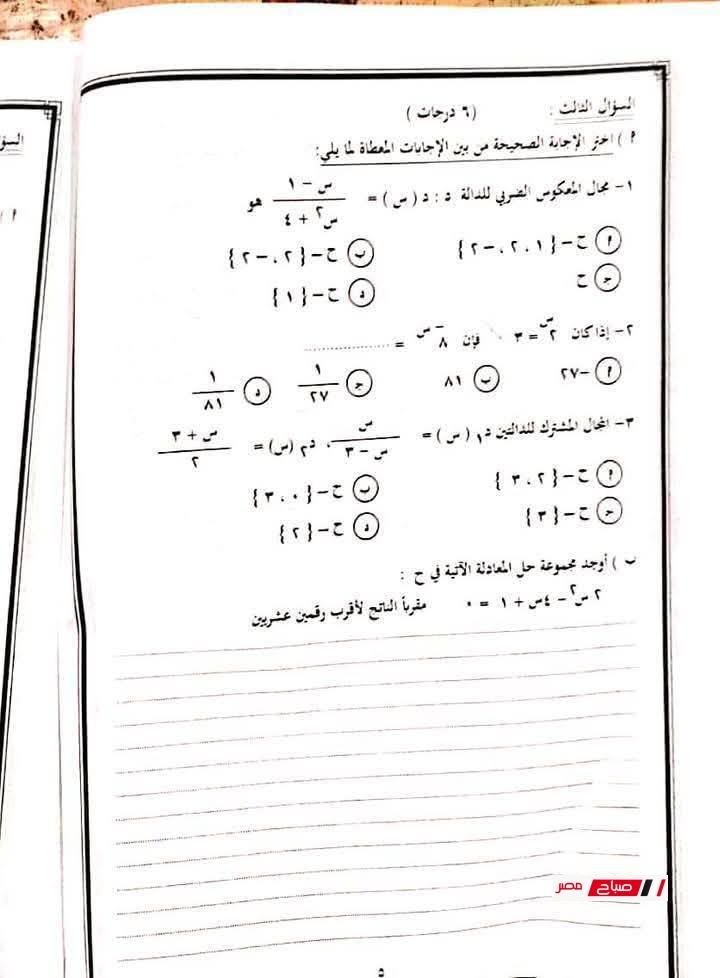 السؤال الثالث : ( ٦ درجات )
أ ) اختر الإجابة الصحيحة من بين الإجابات المعطاة لما يلي:
١- مجال المعكوس الضربي للدالة د : د ( س ) = (س - ١) / (س² + ٤) هو
أ ح - { ١ ، ٢ ، -٢ } ب ح - { ٢ ، -٢ }
جـ ح د ح - { ١ }
٢- إذا كان ٢^س = ٣ فإن ٨^-س = ....................
أ -٢٧ ب ٨١ جـ ١/٢٧ د ١/٨١
٣- المجال المشترك للدالتين د١ ( س ) = س / (س - ٣) ، د٢ (س) = (س + ٣) / ٢
أ ح - { ٢ ، ٣ } ب ح - { ٠ ، ٣ }
جـ ح - { ٣ } د ح - { ٢ }
ب ) أوجد مجموعة حل المعادلة الآتية في ح :
٢ س² - ٤ س + ١ = ٠ مقرباً الناتج لأقرب رقمين عشريين
صباح مصر
٥